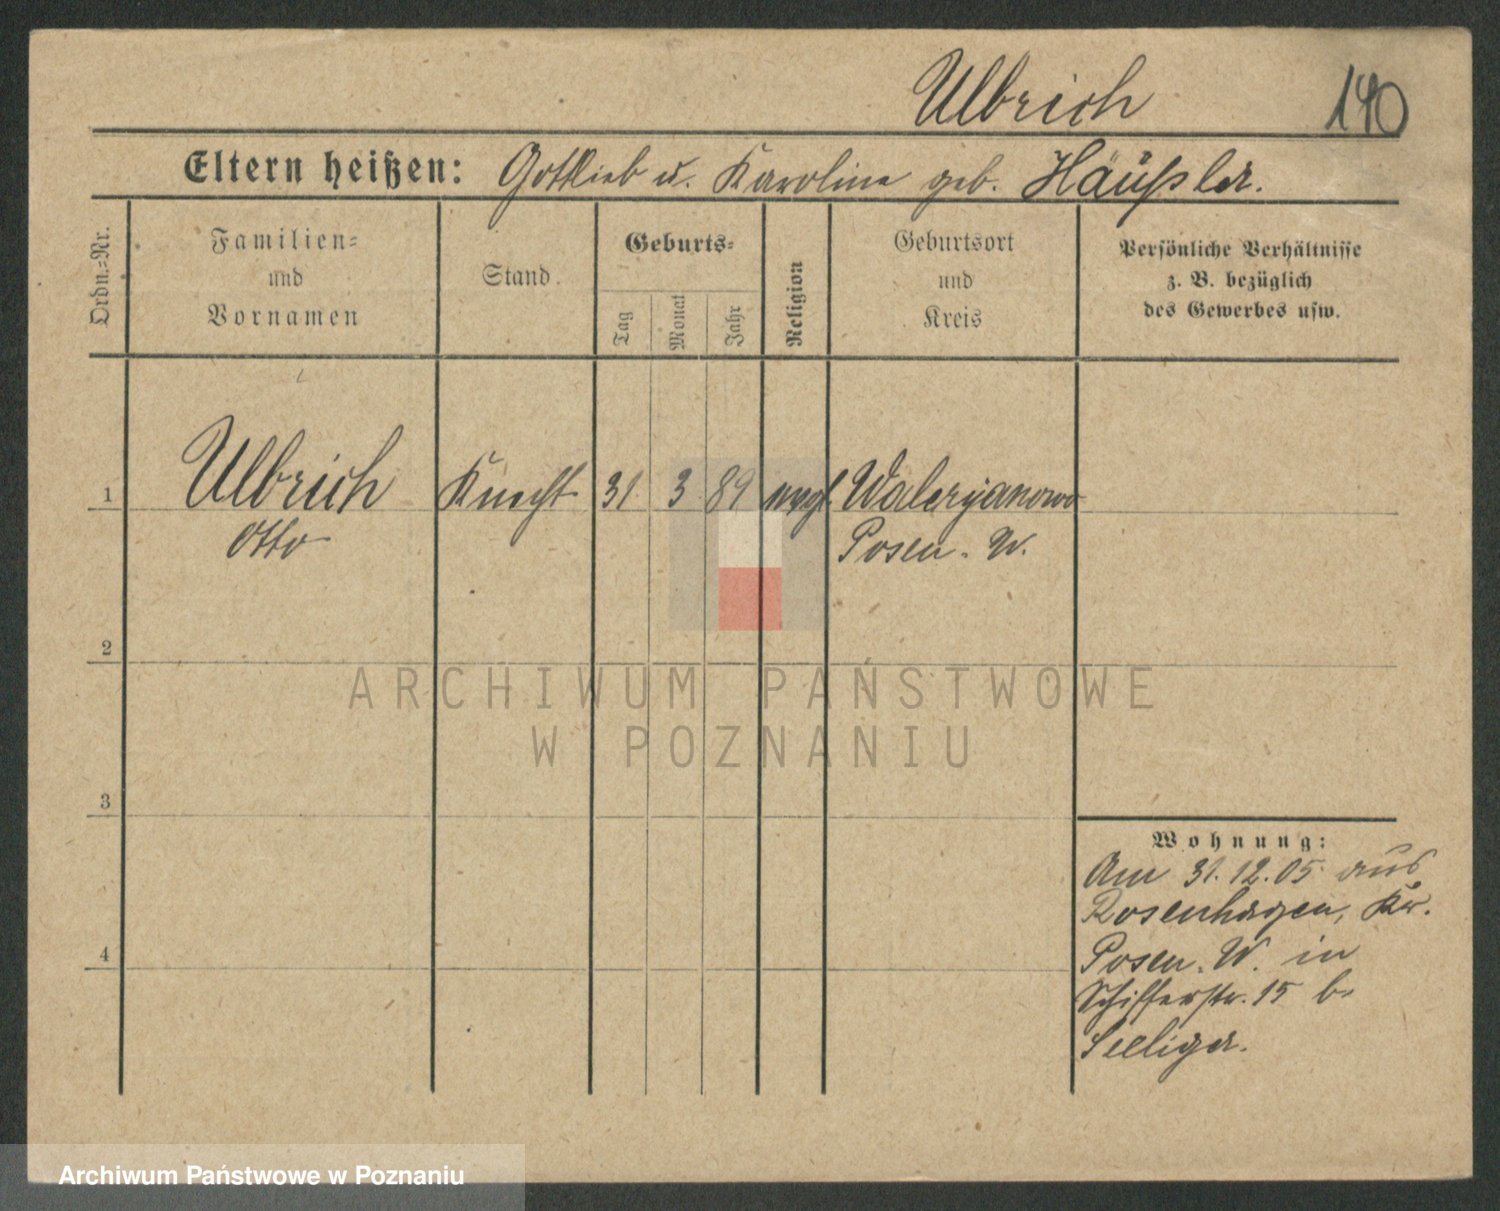 Ulbrich 140
Eltern heißen: Gottlieb u. Karoline geb. Häußler.
Ordn.=Nr.
Familien=
und
Vornamen
Stand
Geburts=
Tag
Monat
Jahr
Religion
Geburtsort
und
Kreis
Persönliche Verhältnisse
z. B. bezüglich
des Gewerbes usw.
1 Ulbrich Knecht 31. 3. 89 evgl. Waleryanowo
Otto Posen. W.
2
3
4
Wohnung:
Am 31.12.05 aus
Rosenhagen, Kr.
Posen. W. in
Schifferstr. 15 b.
Seeliger.
ARCHIWUM PAŃSTWOWE
W POZNANIU
Archiwum Państwowe w Poznaniu